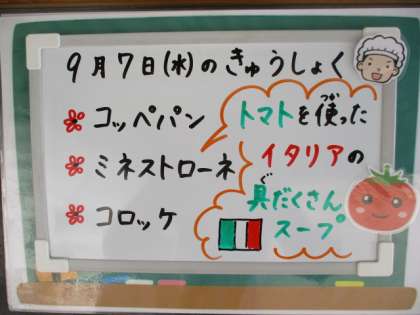 9月7日(水)のきゅうしょく
コッペパン
ミネストローネ
コロッケ
トマトを使った
つか
イタリアの
具だくさん
ぐ
スープ